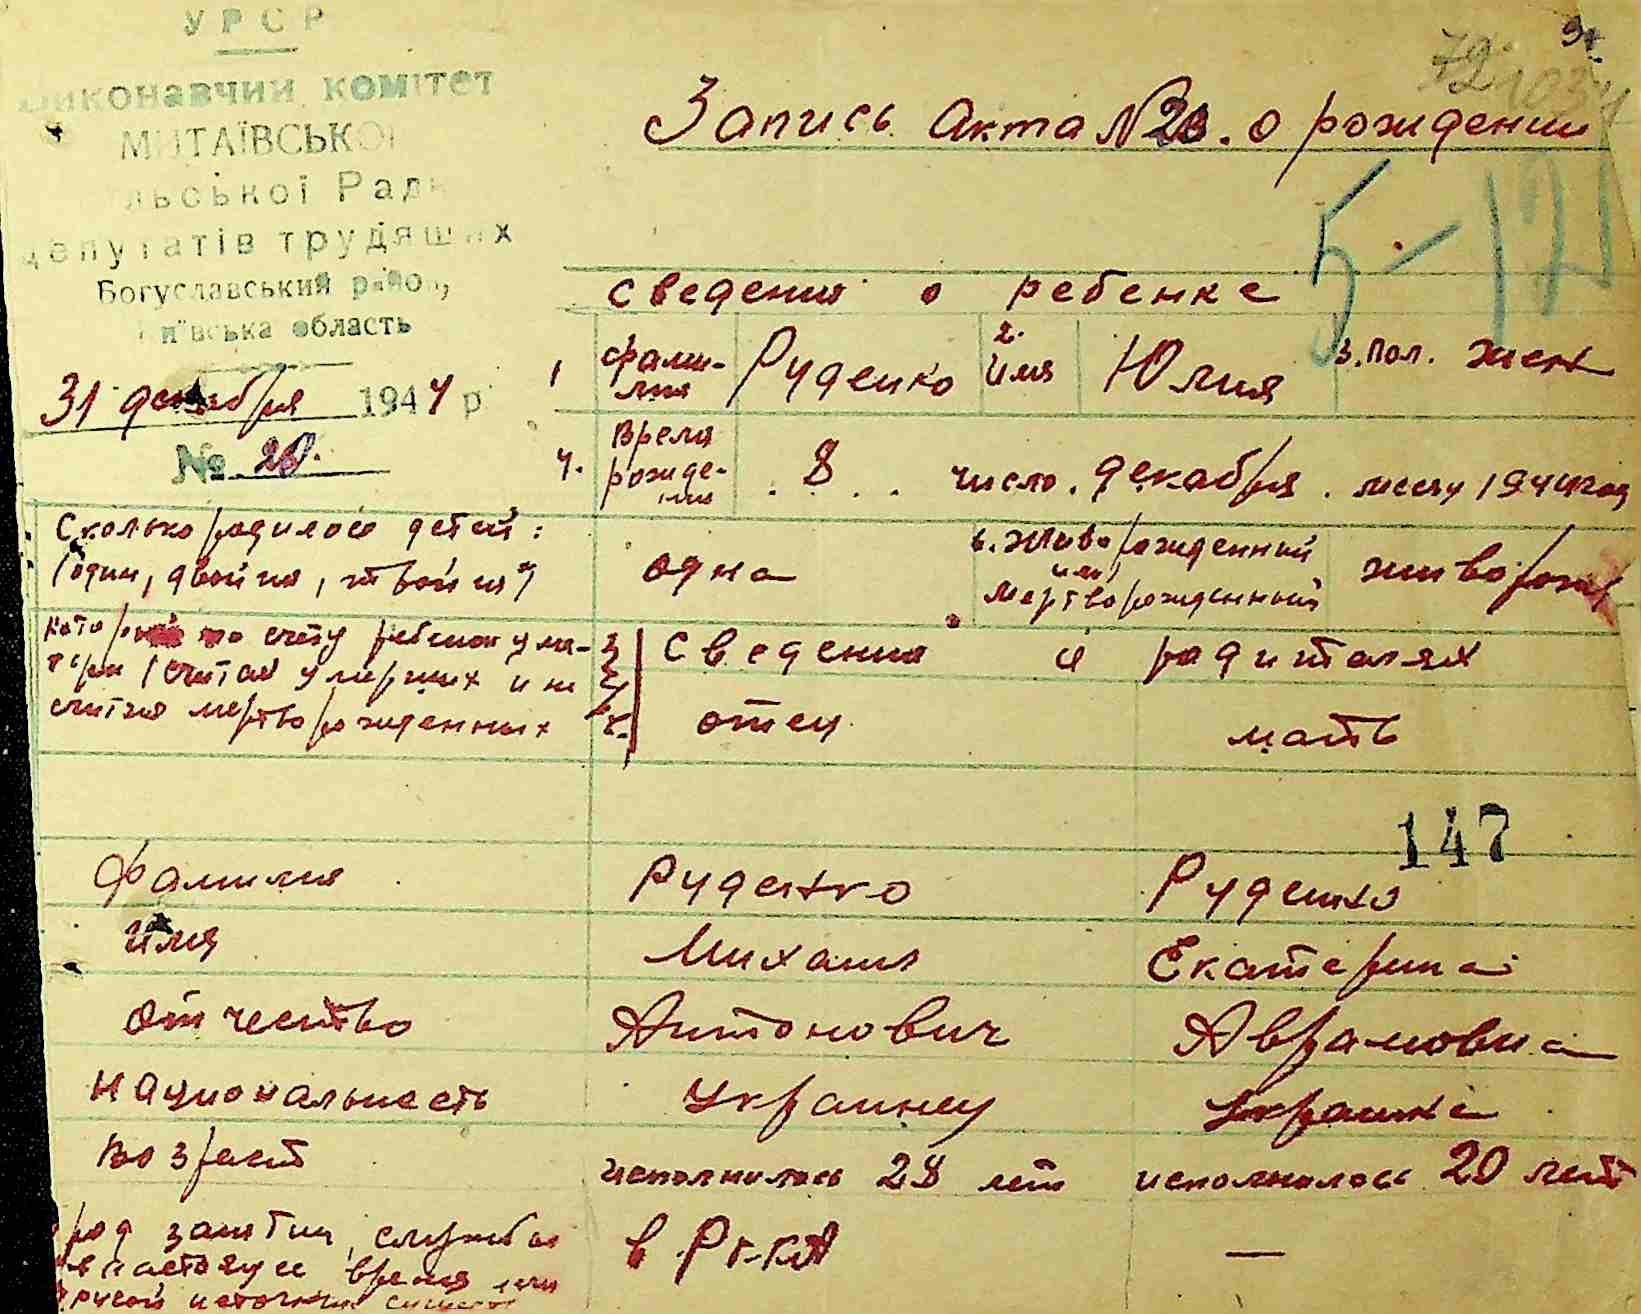 УРСР
виконавчий комітет
МИТАЇВСЬКОЇ
сільської Ради
депутатів трудящих
Богуславський район,
Київська область
31 декабря 1944 р
№ 20.
Запись акта № 20. о рождении
5-121
сведения о ребенке
1 фами-
лия Руденко 2. имя Юлия 3. пол. жен
4. Время
рожде-
ния . 8 . . число . декабря . месяц 1944 год
Сколько родилось детей:
(один, двойня, тройня) одна 6. живорожденный
или
мертворожденный живорожд
который по счету ребенок у ма-
тери (считая умерших и не
считая мертворожденных
сведения о родителях
отец мать
147
фамилия Руденко Руденко
имя Михаил Екатерина
отчество Антонович Аврамовна
национальность украинец украинка
возраст исполнилось 28 лет исполнилось 20 лет
род занятий, службы
в настоящее время или
другой источник
в РККА —